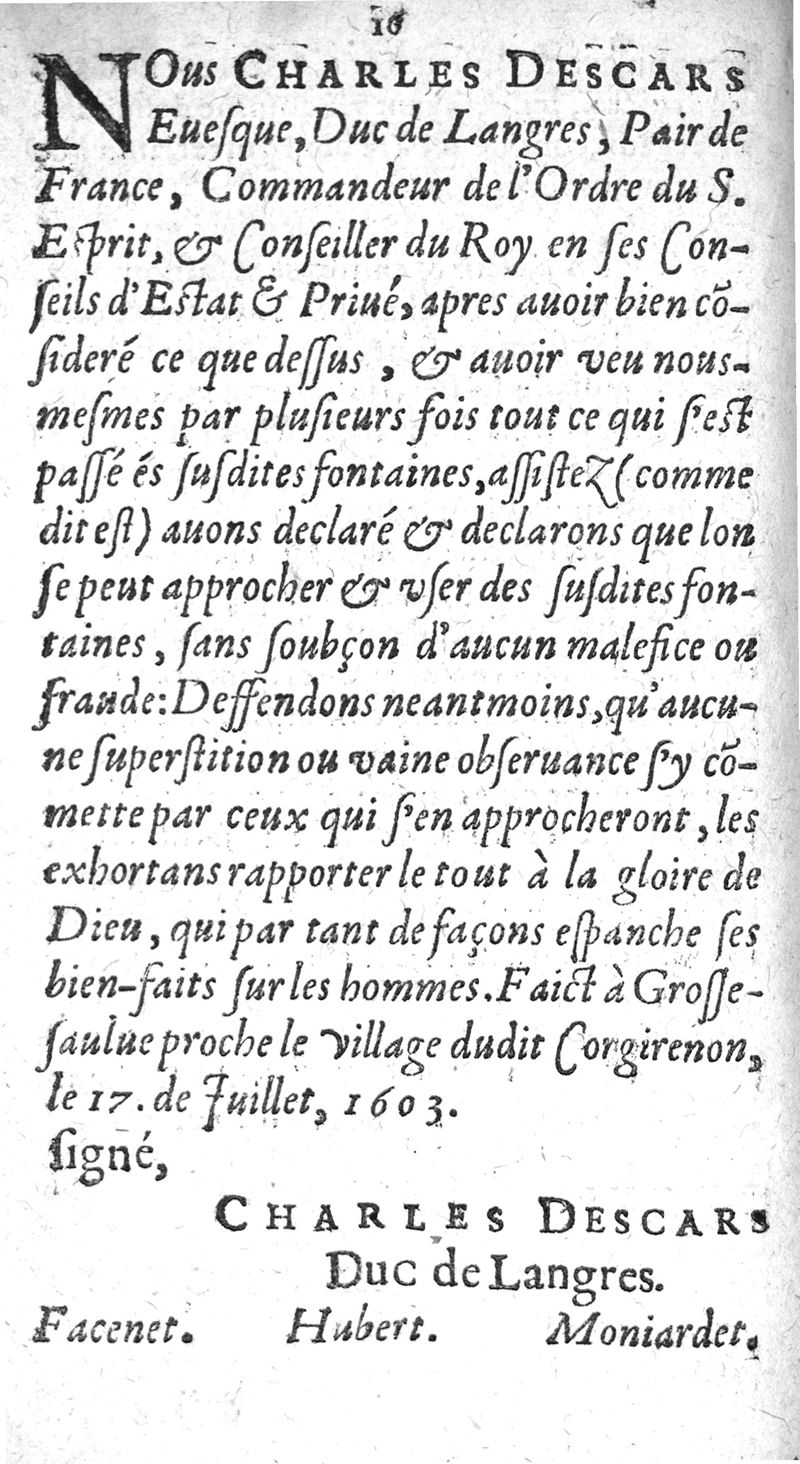 16
NOus CHARLES DESCARS
Eueſque, Duc de Langres, Pair de
France, Commandeur de l'Ordre du S.
Eſprit, & Conſeiller du Roy en ſes Con-
ſeils d'Eſtat & Priué, apres auoir bien cõ-
ſideré ce que deſſus , & auoir veu nous-
meſmes par pluſieurs fois tout ce qui ſ'eſt
paſſé és ſuſdites fontaines, aſſiſtez (comme
dit eſt) auons declaré & declarons que lon
ſe peut approcher & vſer des ſuſdites fon-
taines, ſans ſoubçon d'aucun malefice ou
fraude: Deffendons neantmoins, qu'aucu-
ne ſuperſtition ou vaine obſeruance ſ'y cõ-
mette par ceux qui ſ'en approcheront, les
exhortans rapporter le tout à la gloire de
Dieu, qui par tant de façons eſpanche ſes
bien-faits ſur les hommes. Faict à Groſſe-
ſaulue proche le village dudit Corgirenon,
le 17. de Juillet, 1603.
ſigné,
CHARLES DESCARS
Duc de Langres.
Facenet. Hubert. Moniardet.